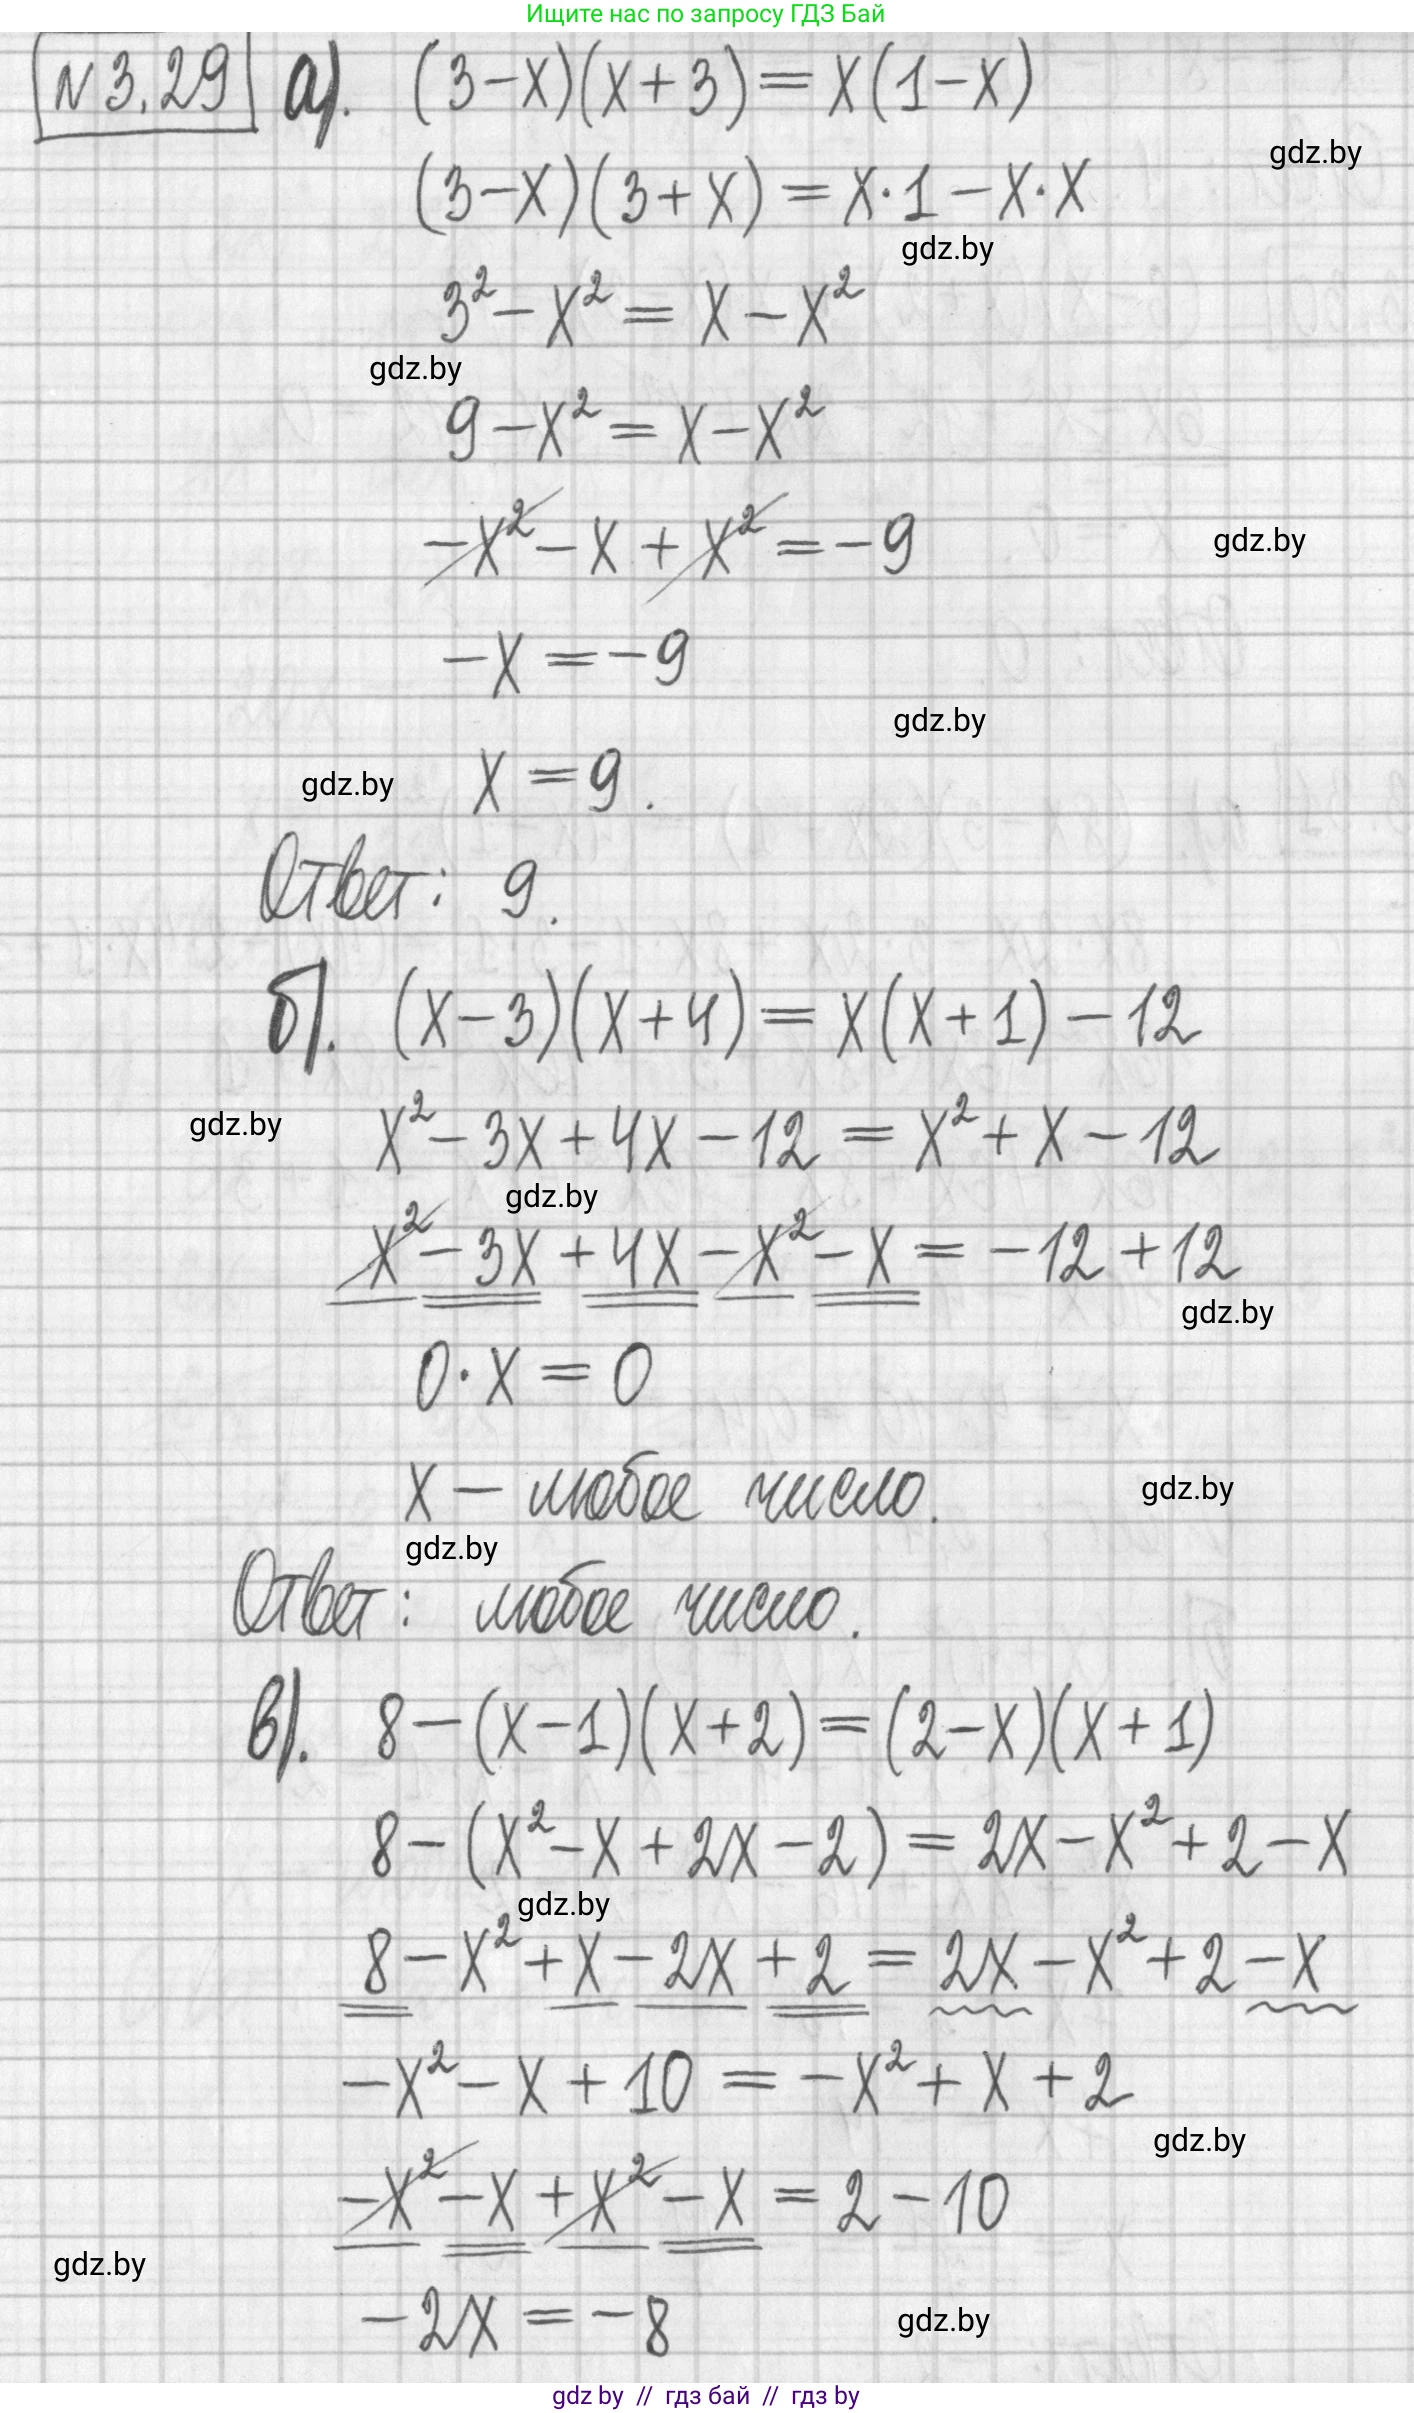 Ищите нас по запросу ГДЗ Бай
N 3.29 а). (3-x)(x+3)=x(1-x)
gdz.by
(3-x)(3+x)=x·1-x·x
gdz.by
3²-x²=x-x²
gdz.by
9-x²=x-x²
-x²-x+x²=-9
gdz.by
-x=-9
gdz.by
gdz.by
x=9.
Ответ: 9.
б). (x-3)(x+4)=x(x+1)-12
gdz.by
x²-3x+4x-12=x²+x-12
gdz.by
x²-3x+4x-x²-x=-12+12
gdz.by
0·x=0
x - любое число.
gdz.by
gdz.by
Ответ: любое число.
в). 8-(x-1)(x+2)=(2-x)(x+1)
8-(x²-x+2x-2)=2x-x²+2-x
gdz.by
8-x²+x-2x+2=2x-x²+2-x
-x²-x+10=-x²+x+2
gdz.by
-x²-x+x²-x=2-10
gdz.by
-2x=-8
gdz.by
gdz by // гдз бай // гдз by